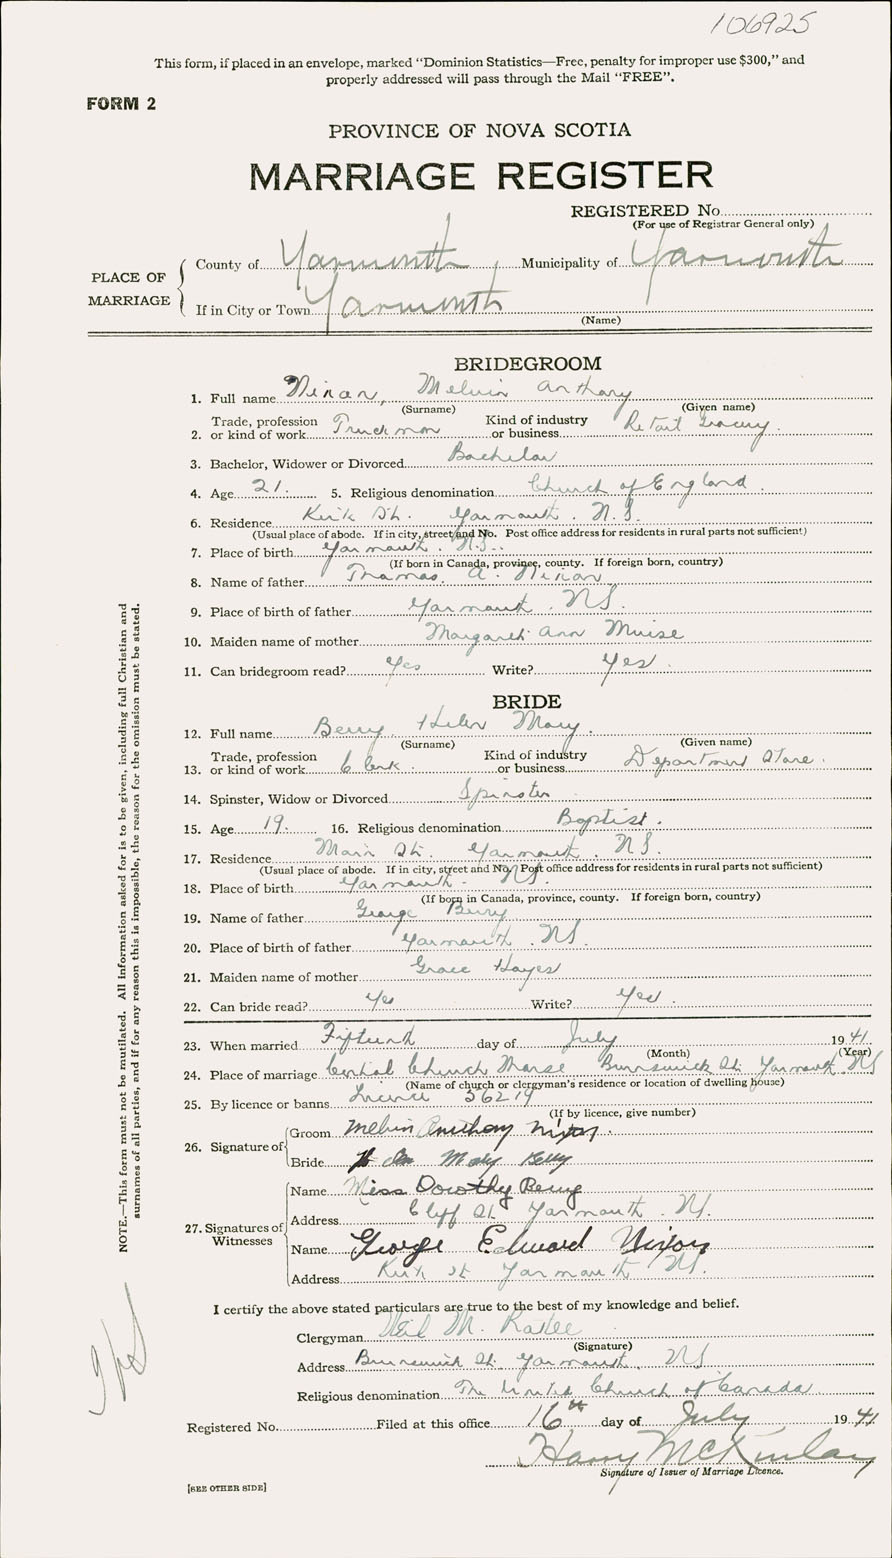 106925
This form, if placed in an envelope, marked "Dominion Statistics—Free, penalty for improper use $300," and
properly addressed will pass through the Mail "FREE".
FORM 2
PROVINCE OF NOVA SCOTIA
MARRIAGE REGISTER
REGISTERED No.
(For use of Registrar General only)
PLACE OF MARRIAGE
County of Yarmouth Municipality of Yarmouth
If in City or Town Yarmouth
(Name)
BRIDEGROOM
1. Full name Nixon, Melvin Anthony
(Surname) (Given name)
2. Trade, profession or kind of work Truckman Kind of industry or business Retail Grocery
3. Bachelor, Widower or Divorced Bachelor
4. Age 21. 5. Religious denomination Church of England.
6. Residence Kirk St. Yarmouth. N.S.
(Usual place of abode. If in city, street and No. Post office address for residents in rural parts not sufficient)
7. Place of birth Yarmouth. N.S.
(If born in Canada, province, county. If foreign born, country)
8. Name of father Thomas. A. Nixon
9. Place of birth of father Yarmouth. NS.
10. Maiden name of mother Margaret Ann Muise
11. Can bridegroom read? Yes Write? Yes.
BRIDE
12. Full name Berry, Helen Mary.
(Surname) (Given name)
13. Trade, profession or kind of work Clerk. Kind of industry or business Department Store.
14. Spinster, Widow or Divorced Spinster
15. Age 19. 16. Religious denomination Baptist.
17. Residence Main St. Yarmouth. NS.
(Usual place of abode. If in city, street and No. Post office address for residents in rural parts not sufficient)
18. Place of birth Yarmouth- NS.
(If born in Canada, province, county. If foreign born, country)
19. Name of father George Berry
20. Place of birth of father Yarmouth. NS.
21. Maiden name of mother Grace Hayes
22. Can bride read? Yes Write? Yes.
23. When married Fifteenth day of July 1941
(Month) (Year)
24. Place of marriage Central Church Manse Brunswick St. Yarmouth. NS
(Name of church or clergyman's residence or location of dwelling house)
25. By licence or banns Licence 56219
(If by licence, give number)
26. Signature of
Groom Melvin Anthony Nixon.
Bride Helen Mary Berry
27. Signatures of Witnesses
Name Miss Dorothy Berry
Address Cliff St. Yarmouth. NS.
Name George Edward Nixon
Address Kirk St Yarmouth NS.
I certify the above stated particulars are true to the best of my knowledge and belief.
Clergyman Neil M.
(Signature)
Address Brunswick St. Yarmouth. NS
Religious denomination The United Church of Canada
Registered No. Filed at this office 16th day of July 1941
Harry McKinlay
Signature of Issuer of Marriage Licence.
[SEE OTHER SIDE]
NOTE.—This form must not be mutilated. All information asked for is to be given, including full Christian and
surnames of all parties, and if for any reason this is impossible, the reason for the omission must be stated.